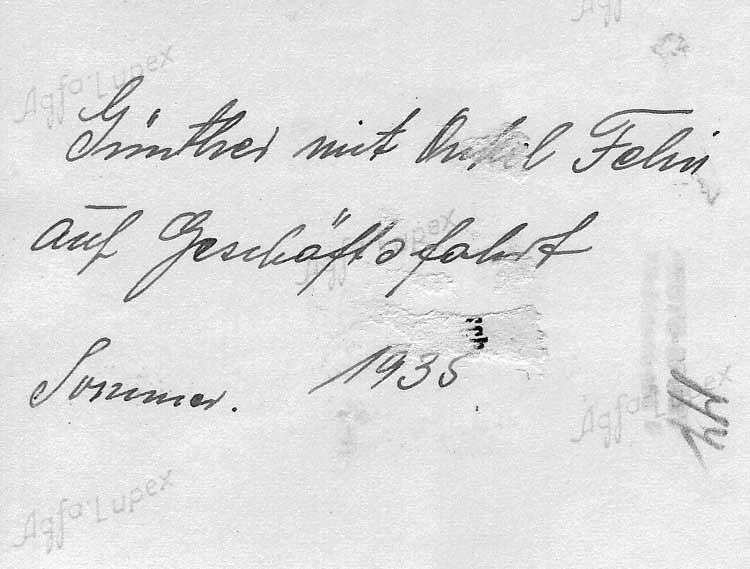 Agfa-Lupex
Günther mit Onkel Felix
auf Geschäftsfahrt
Agfa-Lupex
Sommer. 1935
Agfa-Lupex
Agfa-Lupex